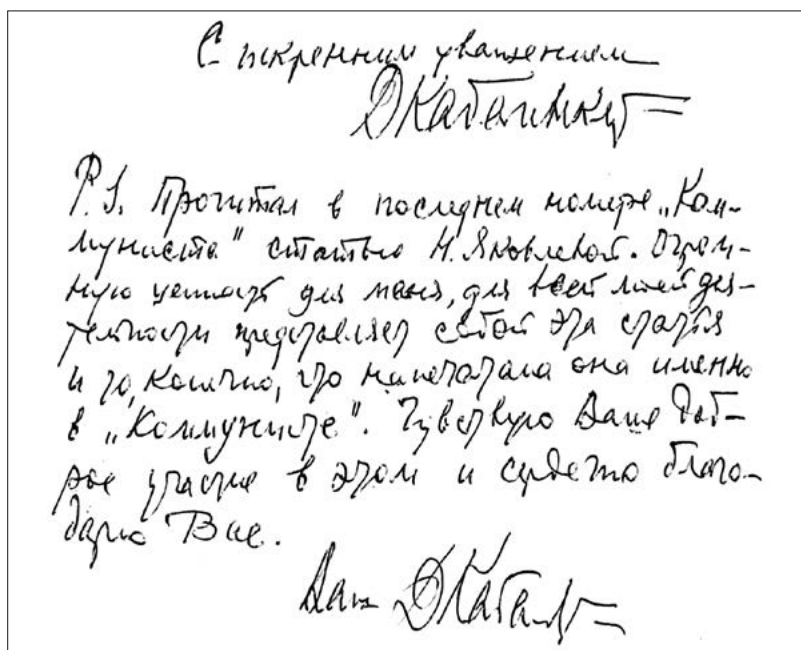 С искренним уважением
ДКабалевский
P.S. Прочитал в последнем номере „Ком-
муниста" статью Н. Яковлевой. Огром-
ную ценность для меня, для всей моей дея-
тельности представляет собой эта статья
и то, конечно, что напечатана она именно
в „Коммунисте". Чувствую Ваше доб-
рое участие в этом и сердечно благо-
дарю Вас.
Ваш ДКабалев